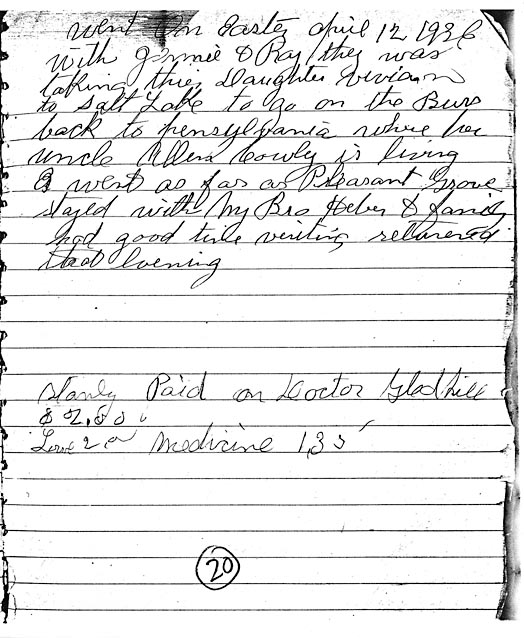 went on Easter april 12 1936
with Jennie & Ray they was
taking thie Daughter Vivian
to Salt Lake to go on the Buss
back to pensylvania where her
uncle Allen Cowly is living
I went as far as Pleasant Grove
stayed with My Bro Heber & family
had good time visiting returned
that Evening
Stanly Paid on Doctor Gladhill
$2.00
medicine 1,35
20